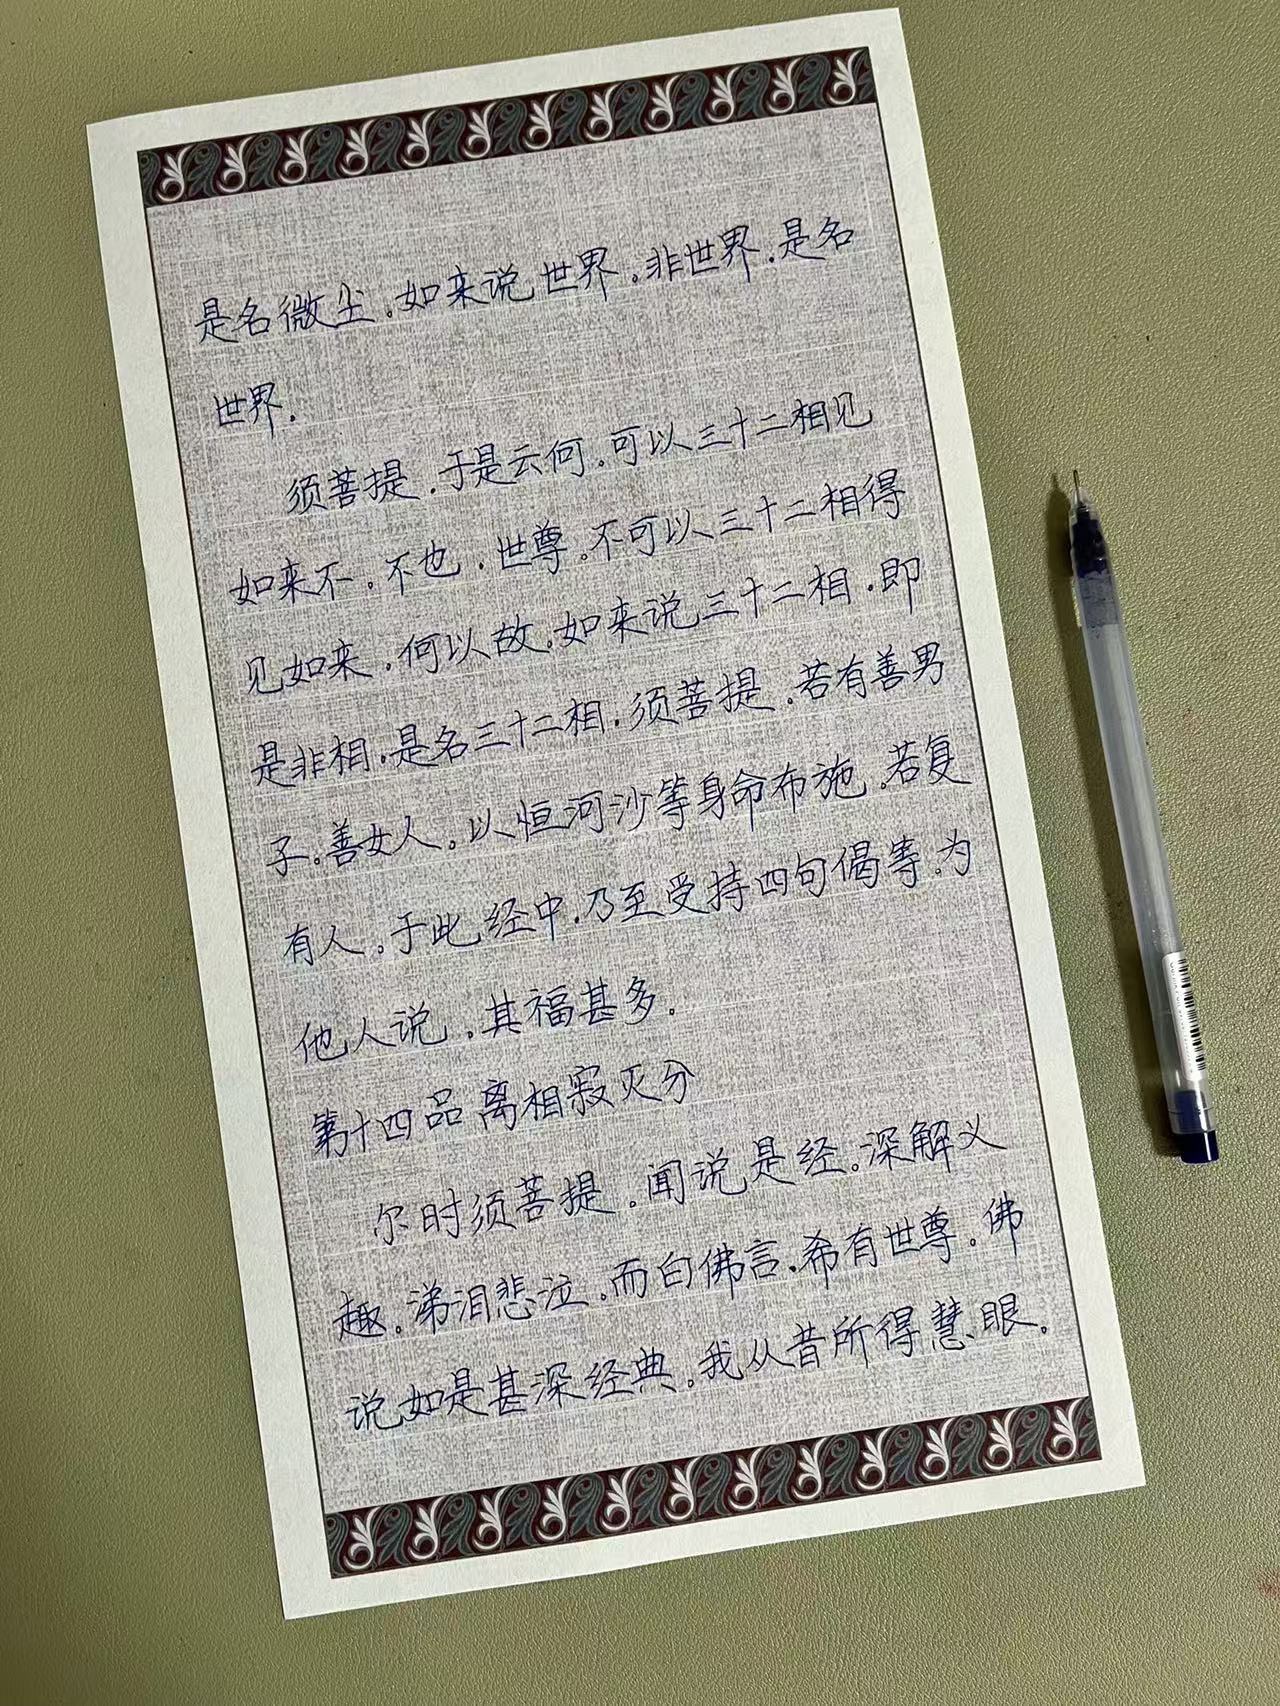 是名微尘。如来说世界。非世界.是名
世界.
须菩提.于是云何.可以三十二相见
如来不。不也.世尊。不可以三十二相得
见如来.何以故.如来说三十二相.即
是非相.是名三十二相.须菩提.若有善男
子.善女人.以恒河沙等身命布施.若复
有人.于此经中.乃至受持四句偈等.为
他人说.其福甚多.
第十四品离相寂灭分
尔时须菩提.闻说是经.深解义
趣.涕泪悲泣.而白佛言.希有世尊.佛
说如是甚深经典.我从昔所得慧眼.